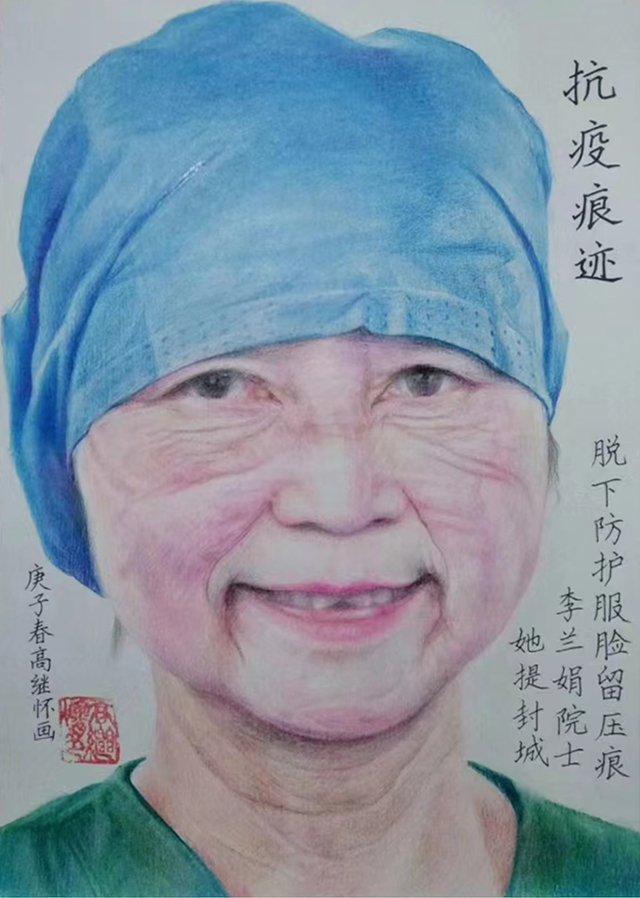 抗疫痕迹
脱下防护服脸留压痕
李兰娟院士
她提封城
庚子春高继怀画